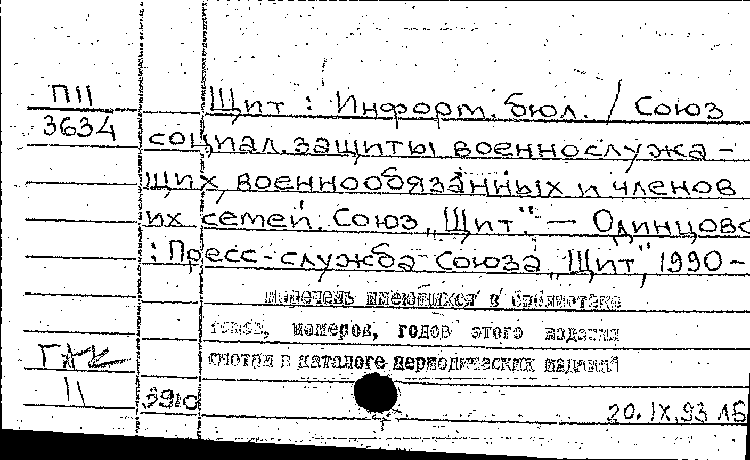 П11 Щит : Информ. бюл. / Союз
3634 социал. защиты военнослужа-
щих, военнообязанных и членов
их семей. Союз „Щит". — Одинцово
: Пресс-служба Союза „Щит", 1990-
перечень имеющихся в библиотеке
томов, номеров, годов этого издания
смотри в каталоге периодических изданий
11 3910 20.IX.93 ЛБ